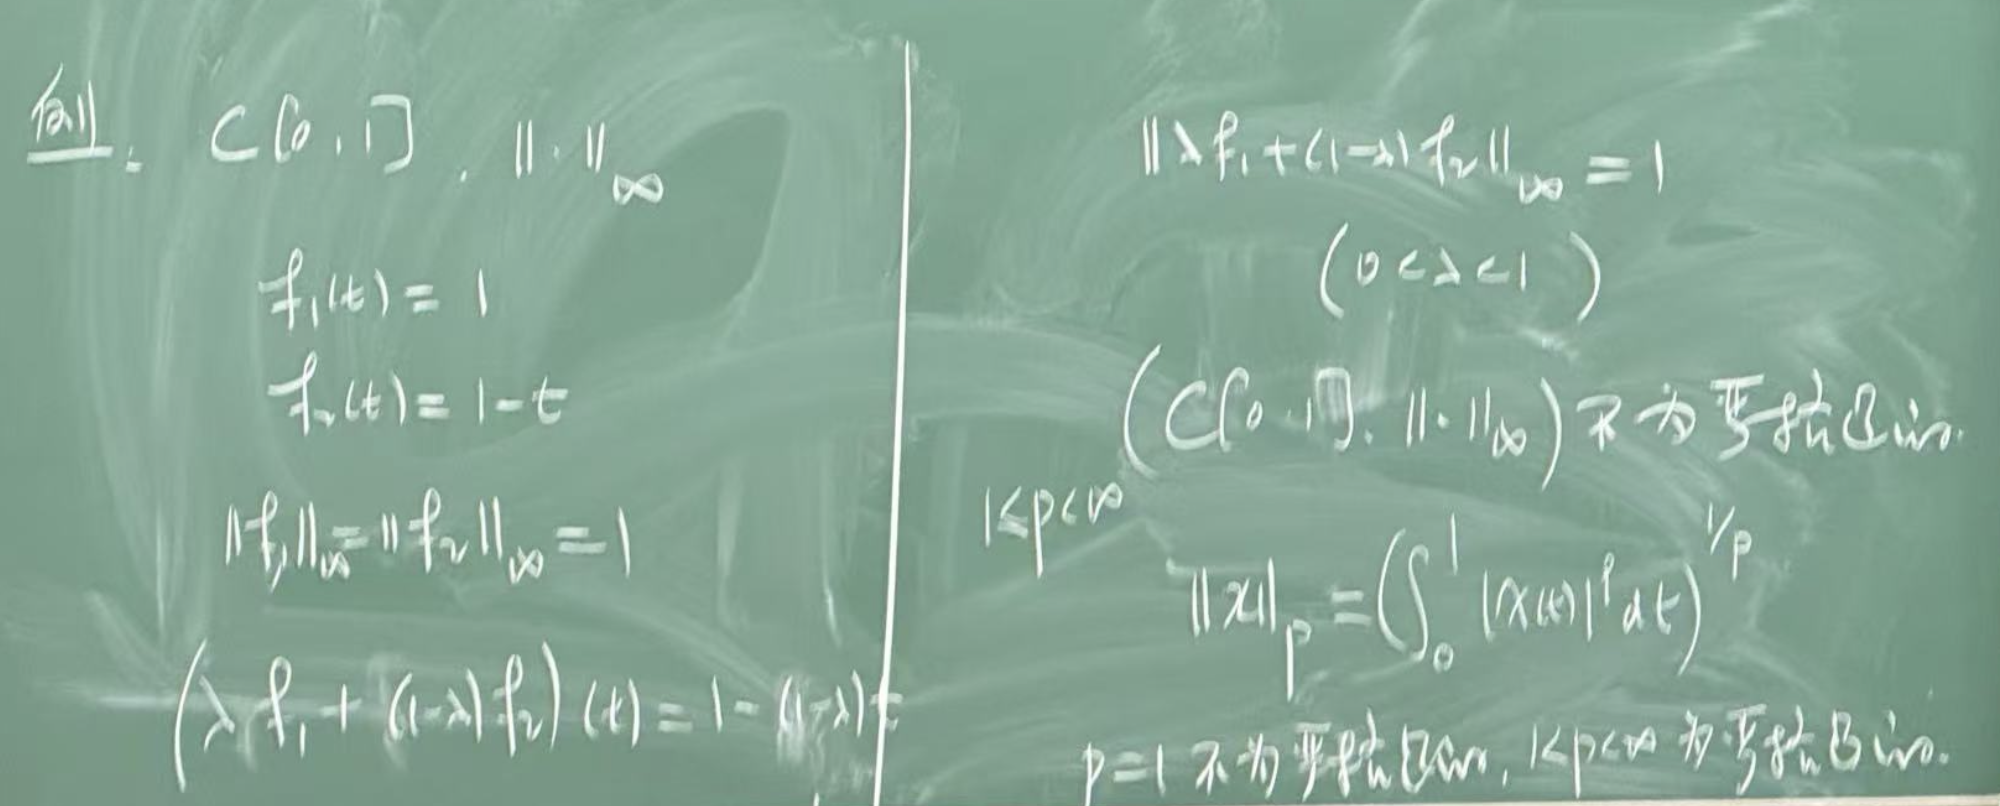 例. C[0,1], ||·||∞
f₁(t) = 1
f₂(t) = 1-t
||f₁||∞ = ||f₂||∞ = 1
(λf₁ + (1-λ)f₂)(t) = 1 - (1-λ)t
||λf₁ + (1-λ)f₂||∞ = 1
(0<λ<1)
(C[0,1], ||·||∞) 不为严格凸的.
1<p<∞
||x||ₚ = (∫₀¹ |x(t)|ᵖ dt)^{1/p}
p=1 不为严格凸的, 1<p<∞ 为严格凸的.